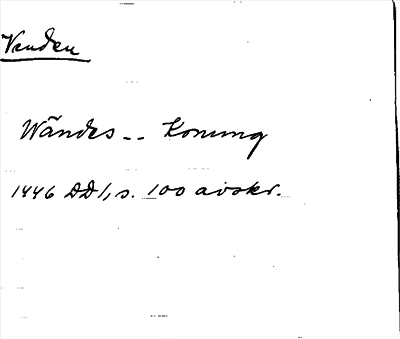 Venden
Wändes -- Konung
1446 DD1, s. 100 avskr.